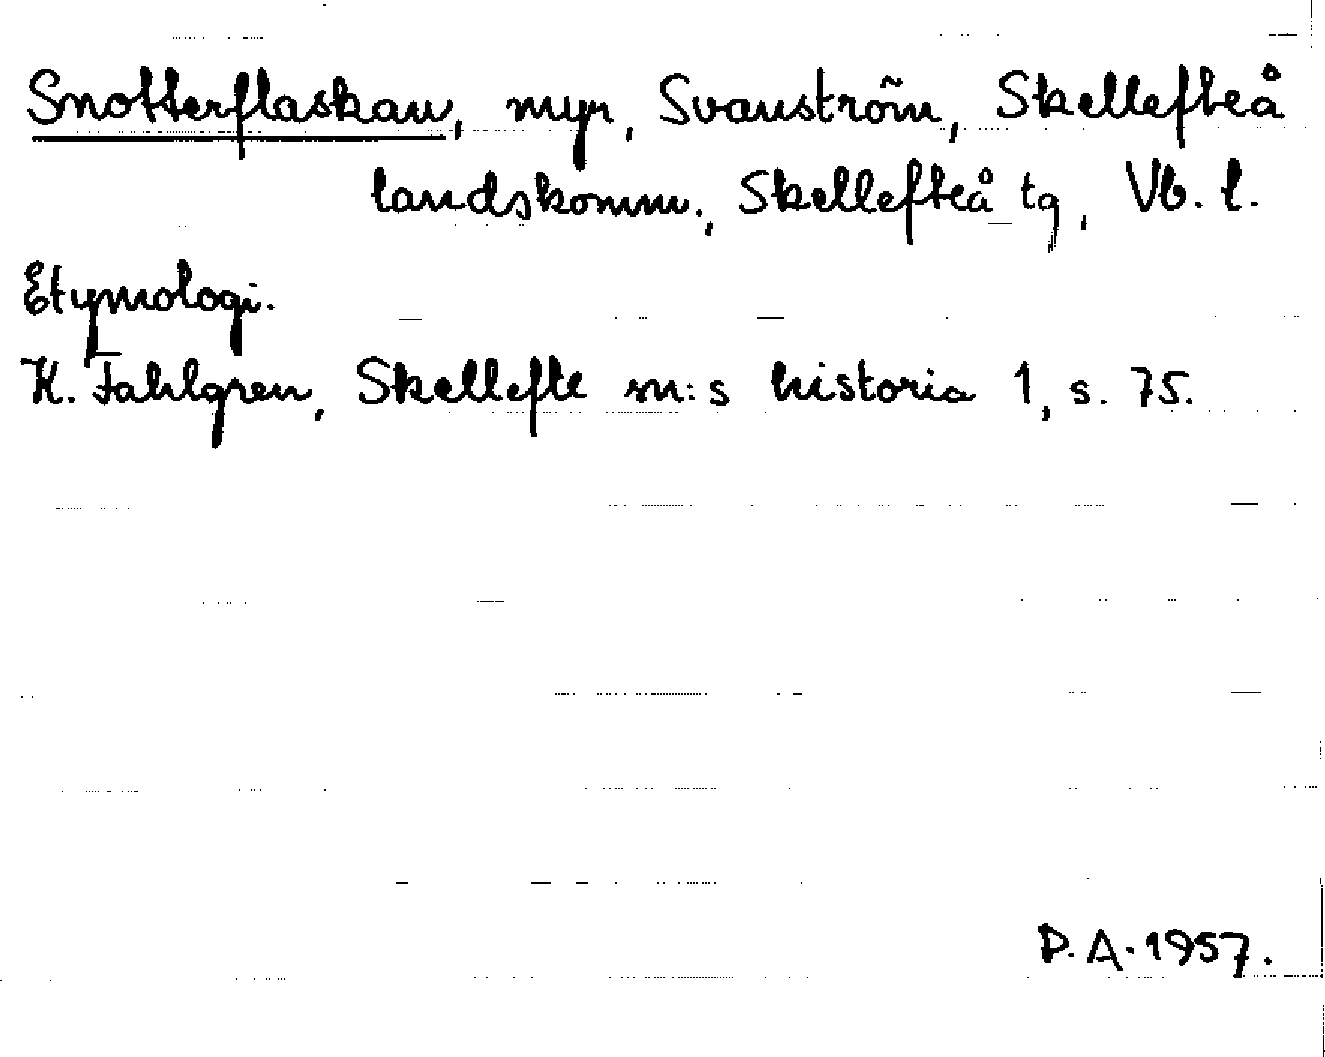 Snotterflaskan, myr, Svanström, Skellefteå
landskomm., Skellefteå tg, Vb. l.
Etymologi.
K. Fahlgren, Skellefte sn:s historia 1, s. 75.
P. A. 1957.